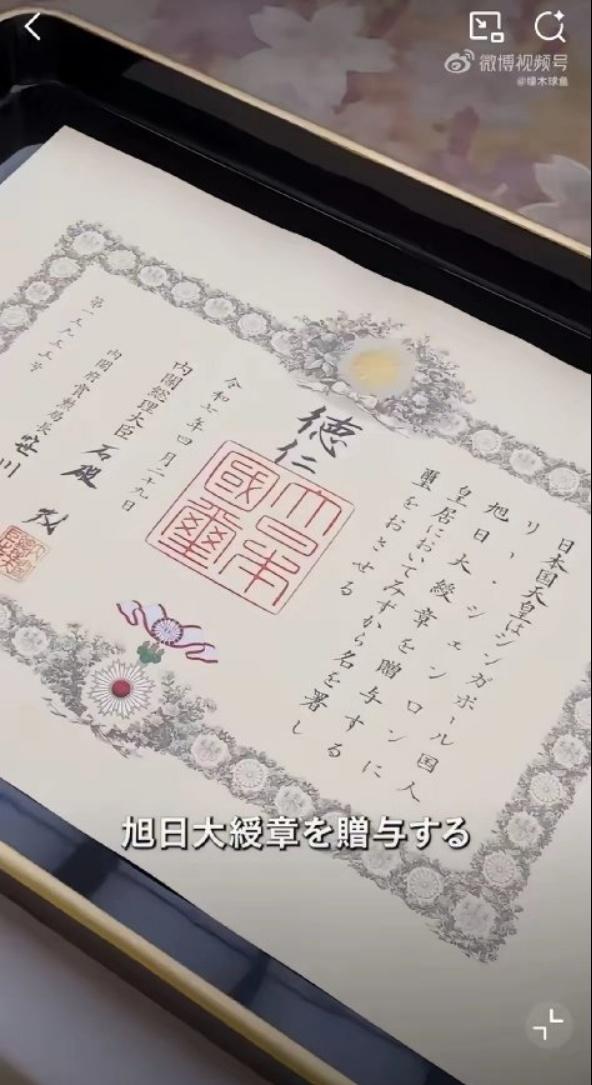 微博视频号
日本国天皇はシンガポール国人
リー・シェンロンに
旭日大綬章を贈与する
皇居においてみずから名を署し
璽をおさせる
徳仁
大日本
國璽
令和七年四月二十九日
内閣総理大臣 石破 茂
内閣府賞勲局長 笹川
旭日大綬章を贈与する